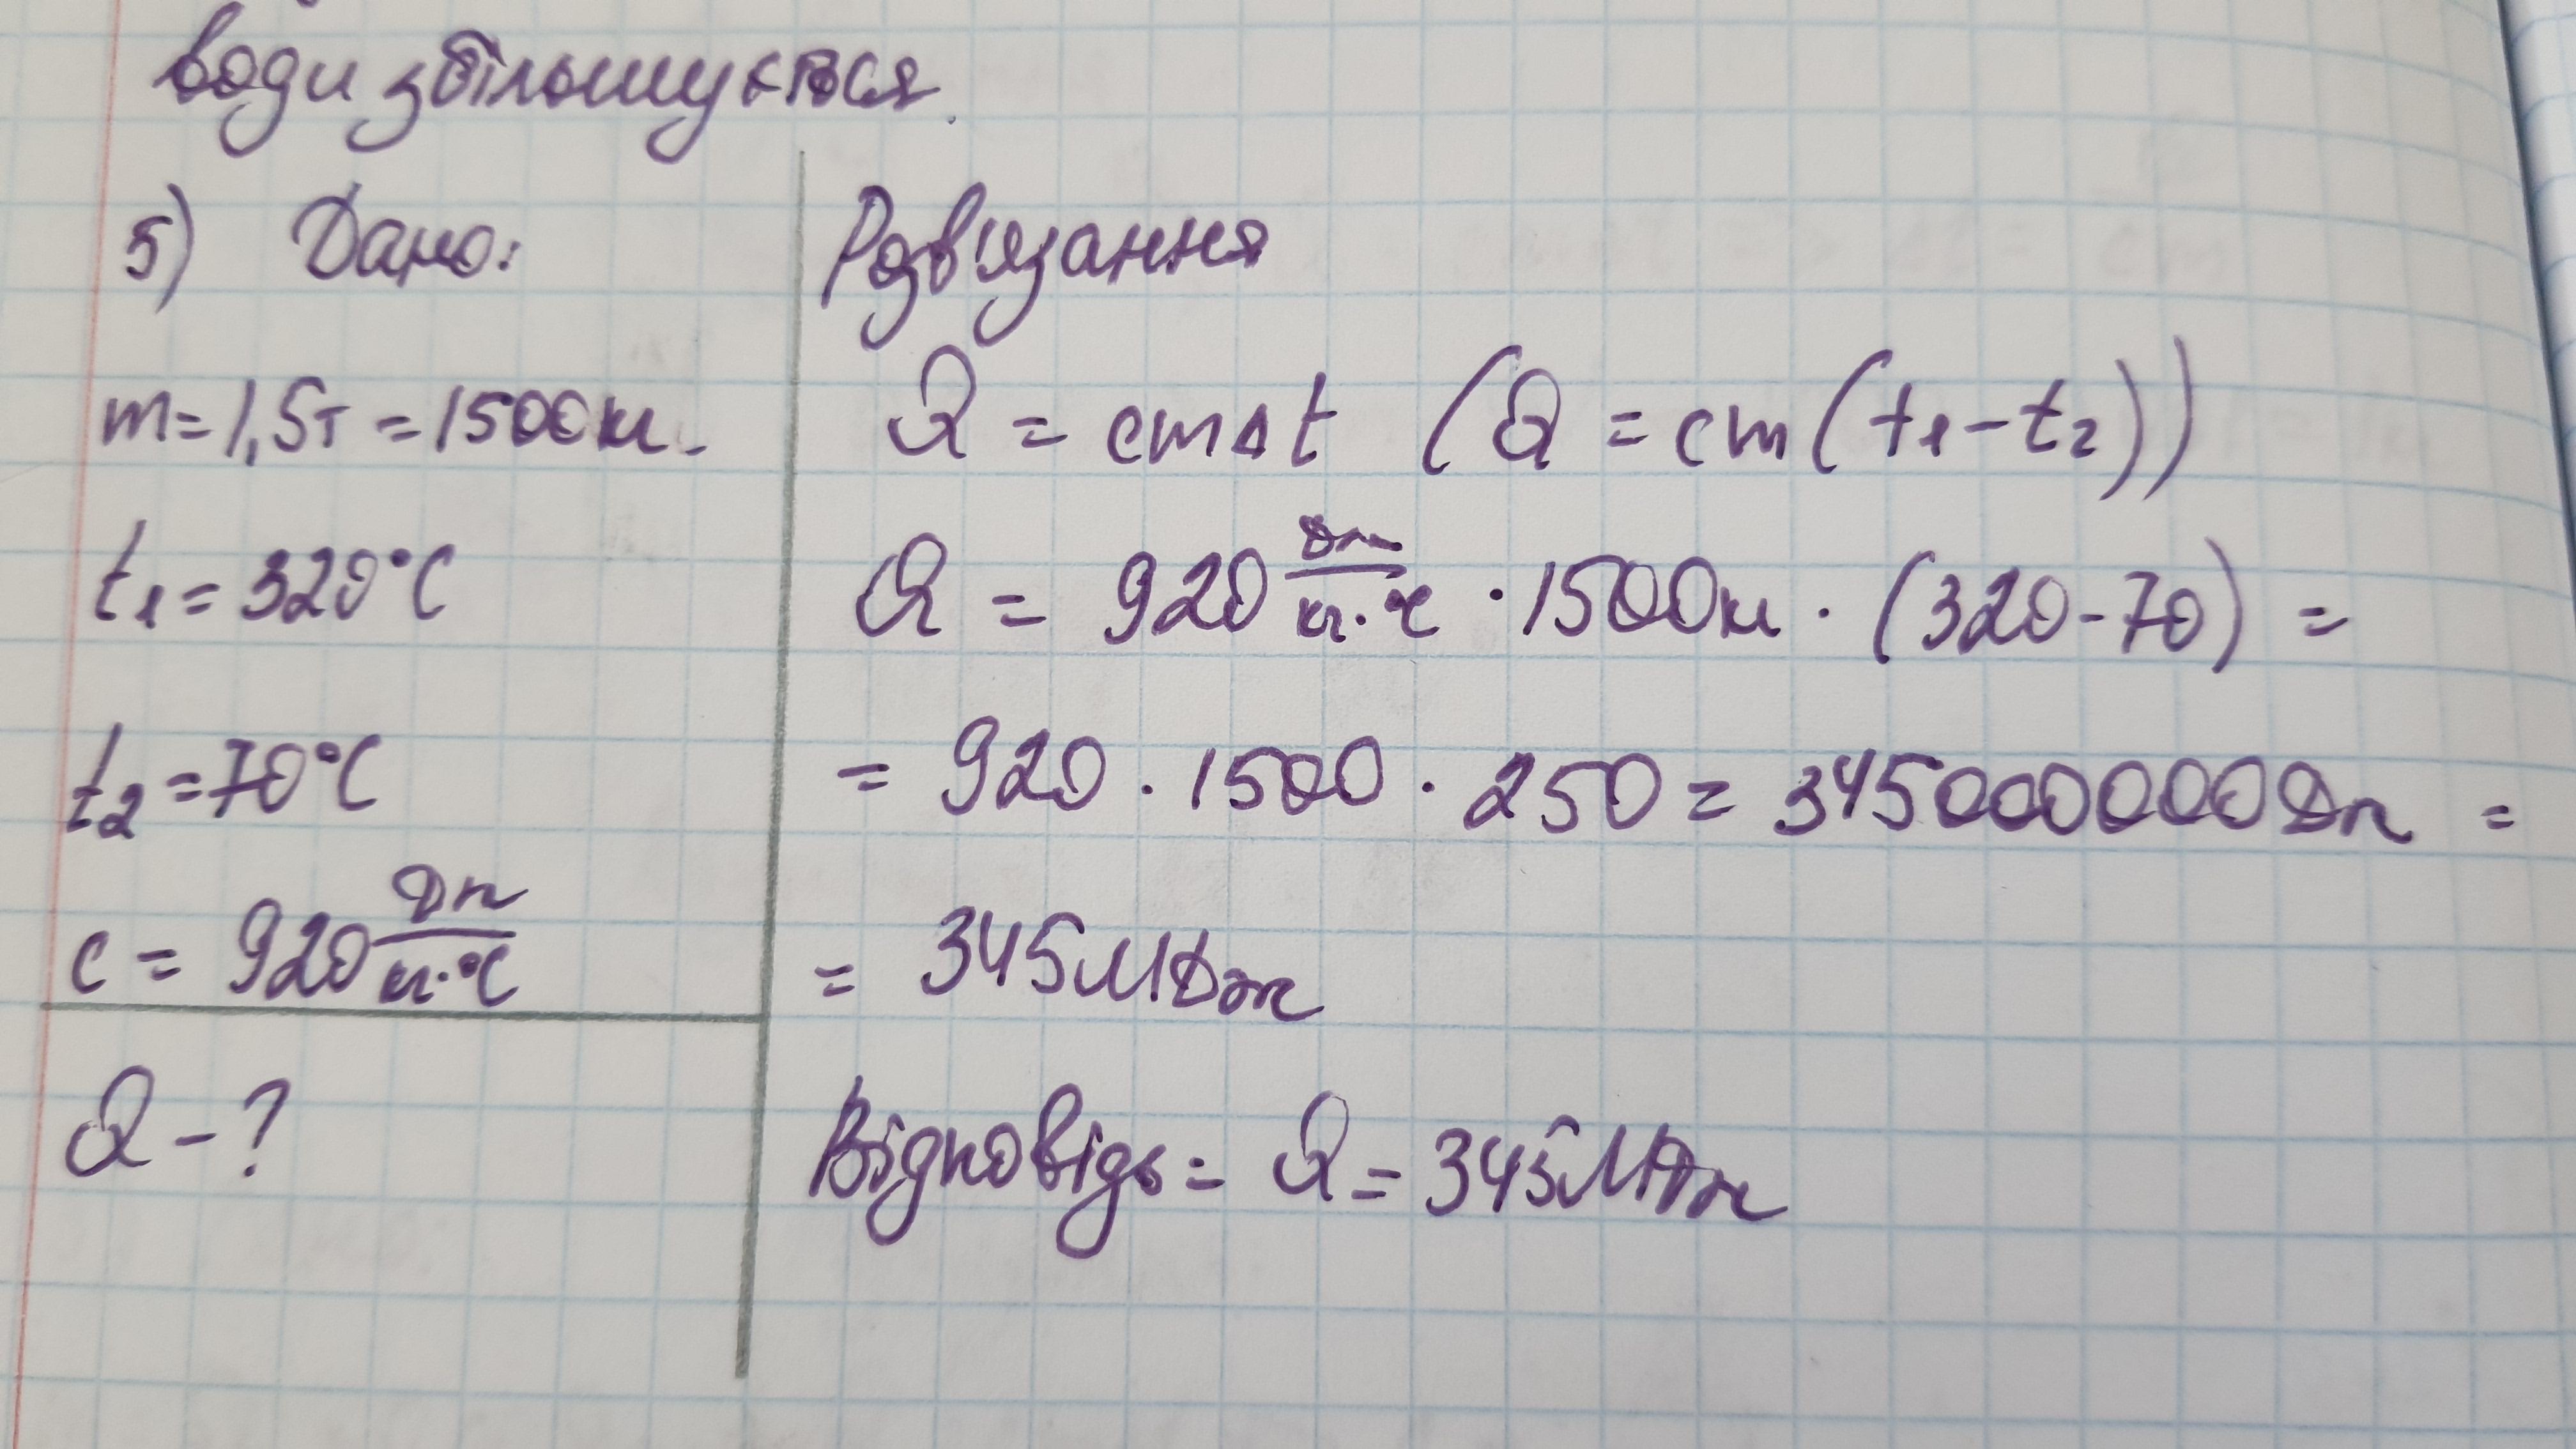 води збільшується.
5) Дано:
m = 1,5т = 1500кг.
t₁ = 320°C
t₂ = 70°C
c = 920 Дж/кг·°C
Q - ?
Розв'язання
Q = cmΔt (Q = cm(t₁-t₂))
Q = 920 Дж/кг·°C · 1500кг · (320-70) =
= 920 · 1500 · 250 = 3450000000Дж =
= 345МДж
Відповідь: Q = 345МДж